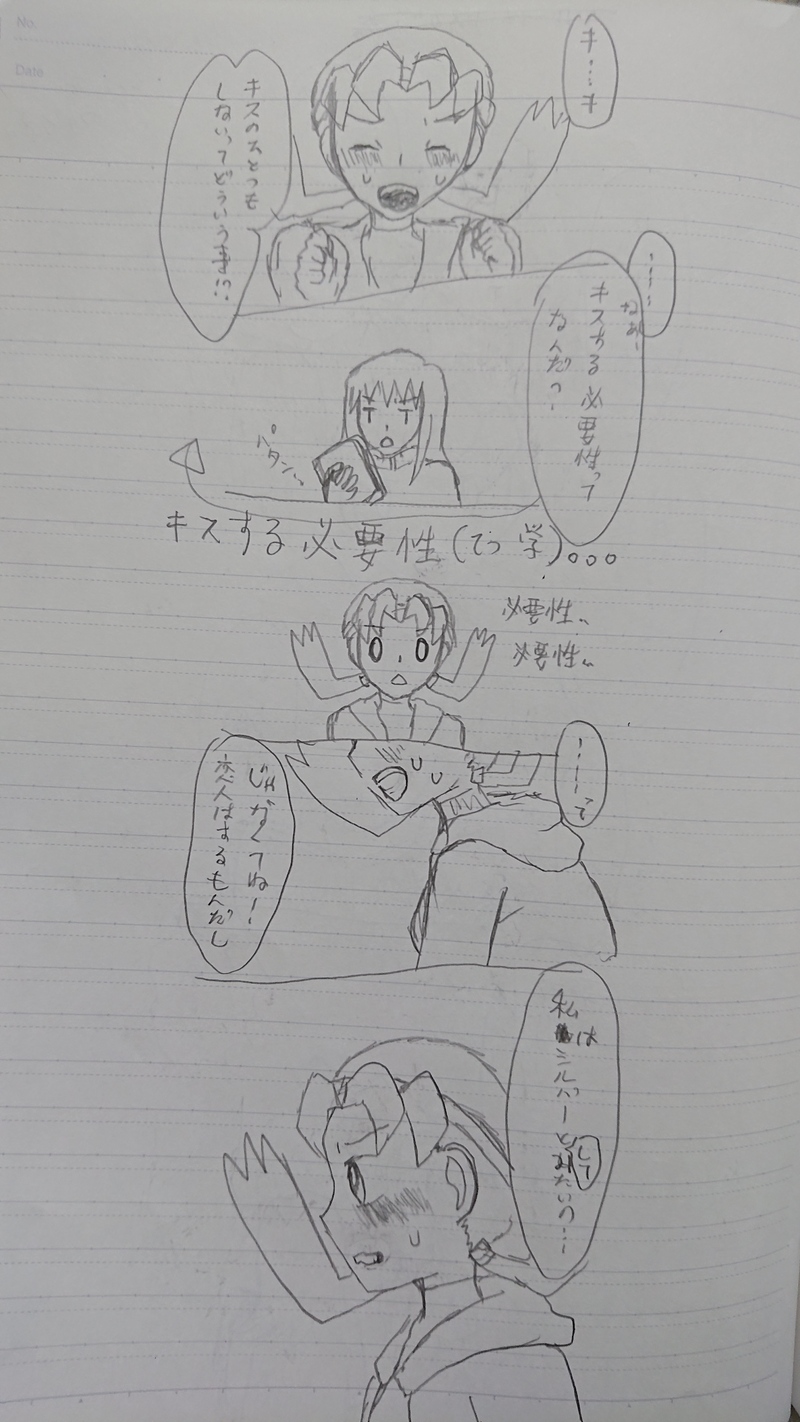 No.
Date
キ…キ
キスのスとつも
しないってどういう事!?
……
なぁ…
キスする必要性って
なんだっ…
パタン…
キスする必要性(てつ学)。。。
必要性…
必要性…
……て
じゃなくてね!
恋人はするもんだし
私はシルバーとしてみたいの…